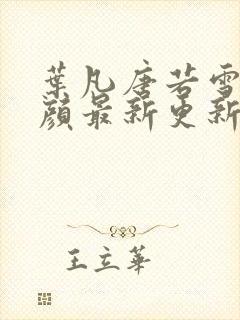 葉凡唐若雪
顏最新更新
王立華